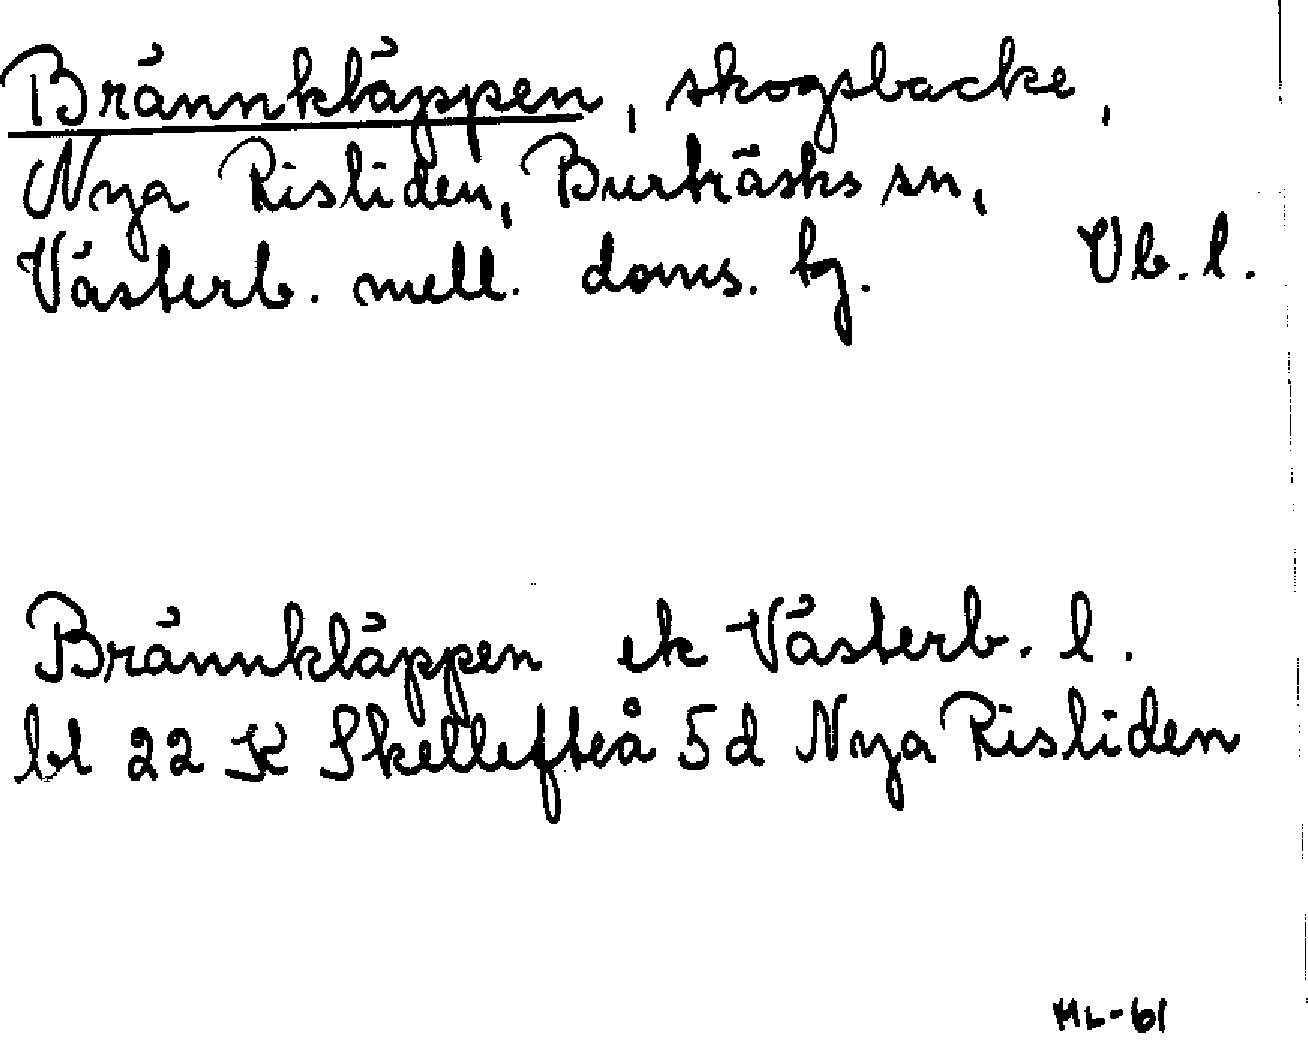 Brännkläppen, skogsbacke,
Nya Risliden, Burträsks sn,
Västerb. mell. doms. tg. Vb. l.
Brännkläppen ek Västerb. l.
bl 22 K Skellefteå 5d Nya Risliden
ML-61